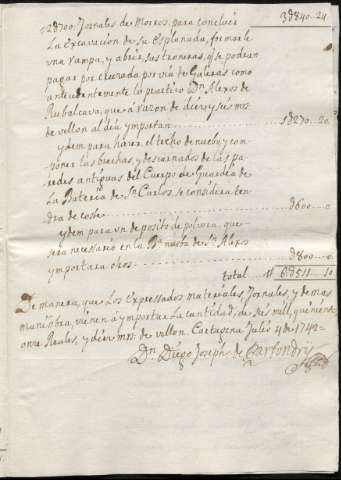 3ᵭ840..24
2ᵭ700. Jornales de Moros, para concluir
La Excavacion de su Esplanada, formarle
vna rampa, y abrir sus troneras, q̃ se podran
pagar por chusma por via de Galeras como
antecedentemente lo practicò Dn. Alexos de
Rubalcava, que à razon de diez y seis mrs.
de vellon al dia ymportan.......1ᵭ270..20
ydem para hazer el techo de nuebo y com
poner las brechas, y descarnados de las pa
redes antiguas del Cuerpo de Guardia de
La Bateria de Sn. Carlos, se considera ten
drà de coste.......ᵭ600...0
ydem para vn deposito de polvora, que
serà necesario en la Ba. nueba de Sn. Alexos
ymportarà otros.......ᵭ800...0
total....6ᵭ511..10
De manera, que Los Expressados materiales, Jornales, y demas
maniobra, vienen à ymportar La cantidad, de seis mill, quinientos
onze Reales, y diez mrs. de vellon. Cartagena Julio 4 de 1742=
Dn. Diego Joseph de